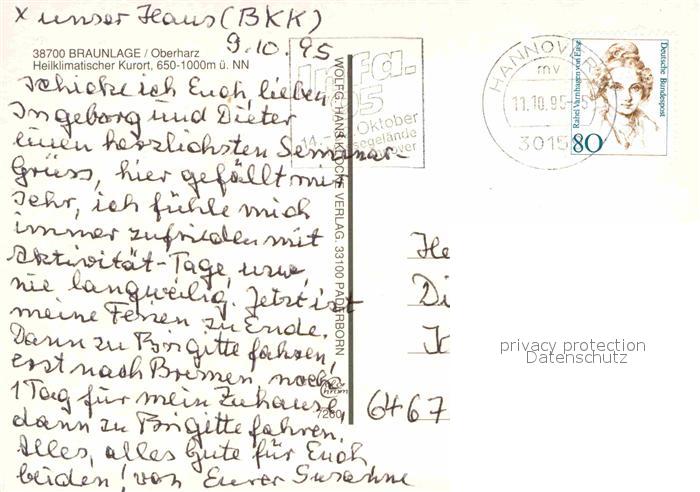 x unser Haus (BKK)
9.10.95
38700 BRAUNLAGE / Oberharz
Heilklimatischer Kurort, 650-1000m ü. NN
schicke ich Euch, lieben
Ingeborg und Dieter
einen herzlichsten Seminar-
Grüss, hier gefällt mir
sehr, ich fühle mich
immer zufrieden mit
Aktivität-Tage, usw,
nie langweilig. Jetzt ist
meine Ferien zu Ende.
Dann zu Brigitte fahren,
erst nach Bremen noch
1 Tag für mein Zuhause,
dann zu Brigitte fahren.
Alles, alles Gute für Euch
beiden! von Eurer Susanne
WOLFG. HANS KLOCKE VERLAG. 33100 PADERBORN
7260
Infa.
95
14. Oktober
Messegelände
Hannover
HANNOVER
mv
11.10.95
3015
Rahel Varnhagen von Ense
80
Deutsche Bundespost
He
Di
6467
privacy protection
Datenschutz